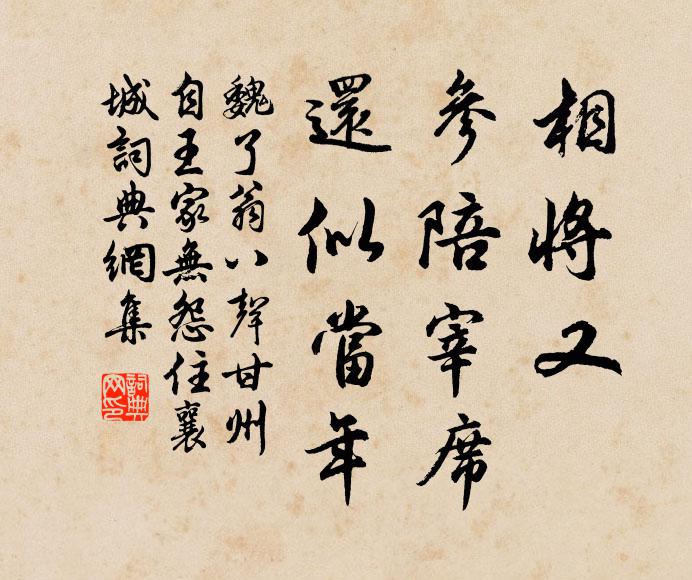 相將又
參陪宰席
還似當年
魏了翁八聲甘州
自王家無怨住襄
城詞典網集
詞典
网印